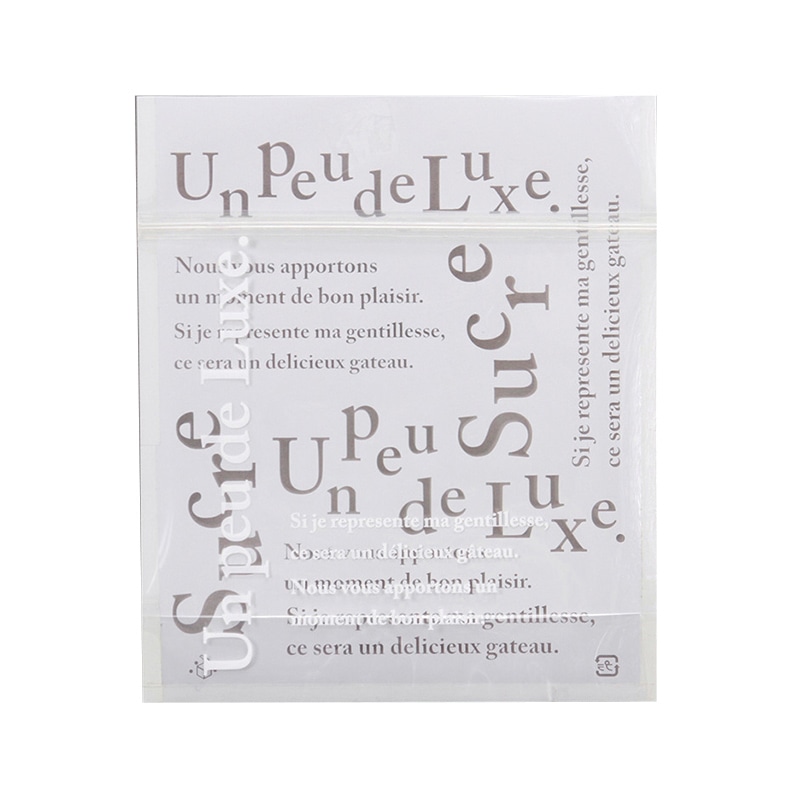 Un peu de Luxe.
Nous vous apportons
un moment de bon plaisir.
Si je represente ma gentillesse,
ce sera un delicieux gateau.
Sucre
Si je represente ma gentillesse,
ce sera un delicieux gateau.
Sucre
Un peu de Luxe.
Un peu de Luxe.
Si je represente ma gentillesse,
ce sera un délicieux gâteau.
Nous vous apportons un
moment de bon plaisir
Nous vous apportons
un moment de bon plaisir.
Si je represente ma gentillesse,
ce sera un delicieux gateau.